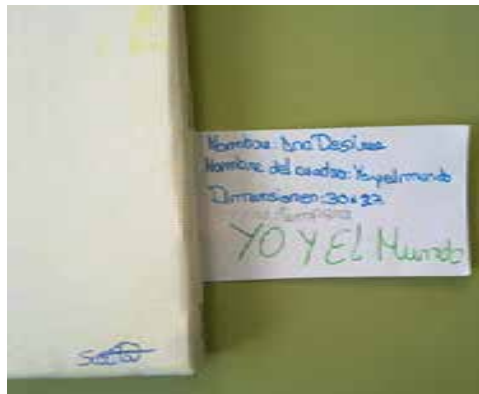 Nombre: Ana Desiree
Nombre del cuadro: Yo y el mundo
Dimensionen: 30x27
YO Y EL Mundo